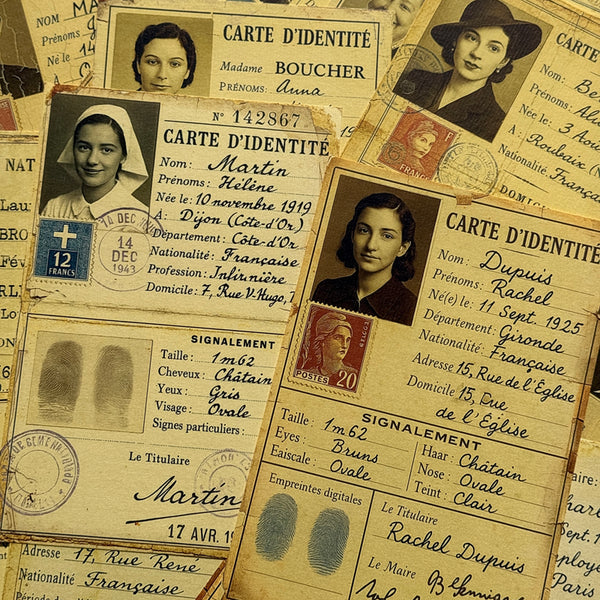 NOM: MA
Prénoms:
Née le:
CARTE D'IDENTITÉ
Madame BOUCHER
PRÉNOMS: Anna
CARTE
Nom: Be
Prénoms:
Née le: 3 Aoû
A: Roubaix (N
Nationalité:
Française
DOMICI
NAT
Lau
BRO
Fév
N° 142867
CARTE D'IDENTITÉ
Nom: Martin
Prénoms: Hélène
Née le: 10 novembre 1919
A: Dijon (Côte-d'Or)
Département: Côte-d'Or
Nationalité: Française
Profession: Infirmière
Domicile: 7, Rue V. Hugo,
12
FRANCS
14 DEC
14
DEC
1943
SIGNALEMENT
Taille: 1m62
Cheveux: Châtain
Yeux: Gris
Visage: Ovale
Signes particuliers:
Le Titulaire
Martin
17 AVR.
CARTE D'IDENTITÉ
Nom: Dupuis
Prénoms: Rachel
Né(e) le: 11 Sept. 1925
Département: Gironde
Nationalité: Française
Adresse 15, Rue de l'Église
Domicile 15, Due
de l'Église
POSTES 20
SIGNALEMENT
Taille: 1m62
Eyes: Bruns
Eaiscale: Ovale
Haar: Châtain
Nose: Ovale
Teint: Clair
Empreintes digitales
Le Titulaire
Rachel Dupuis
Le Maire
Adresse 17, Rue Rene
Nationalité Française